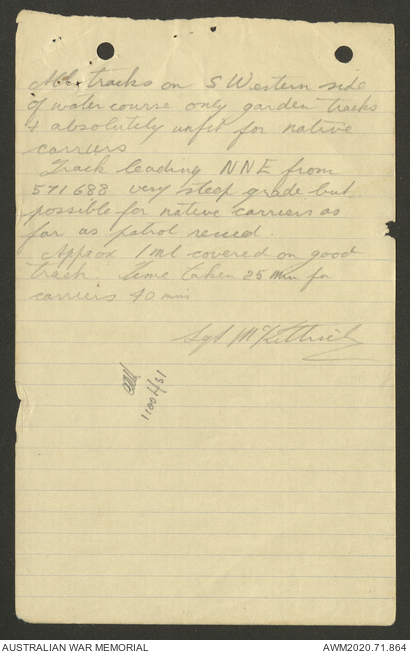 All tracks on S Western side
of water course only garden tracks
& absolutely unfit for native
carriers
Track leading NNE from
571688 very steep grade but
possible for native carriers as
far as patrol recced.
Approx 1 ml covered on good
track. Time taken 25 min for
carriers 40 mins
Sgt McKittrick
1100 4/31
AUSTRALIAN WAR MEMORIAL
AWM2020.71.864